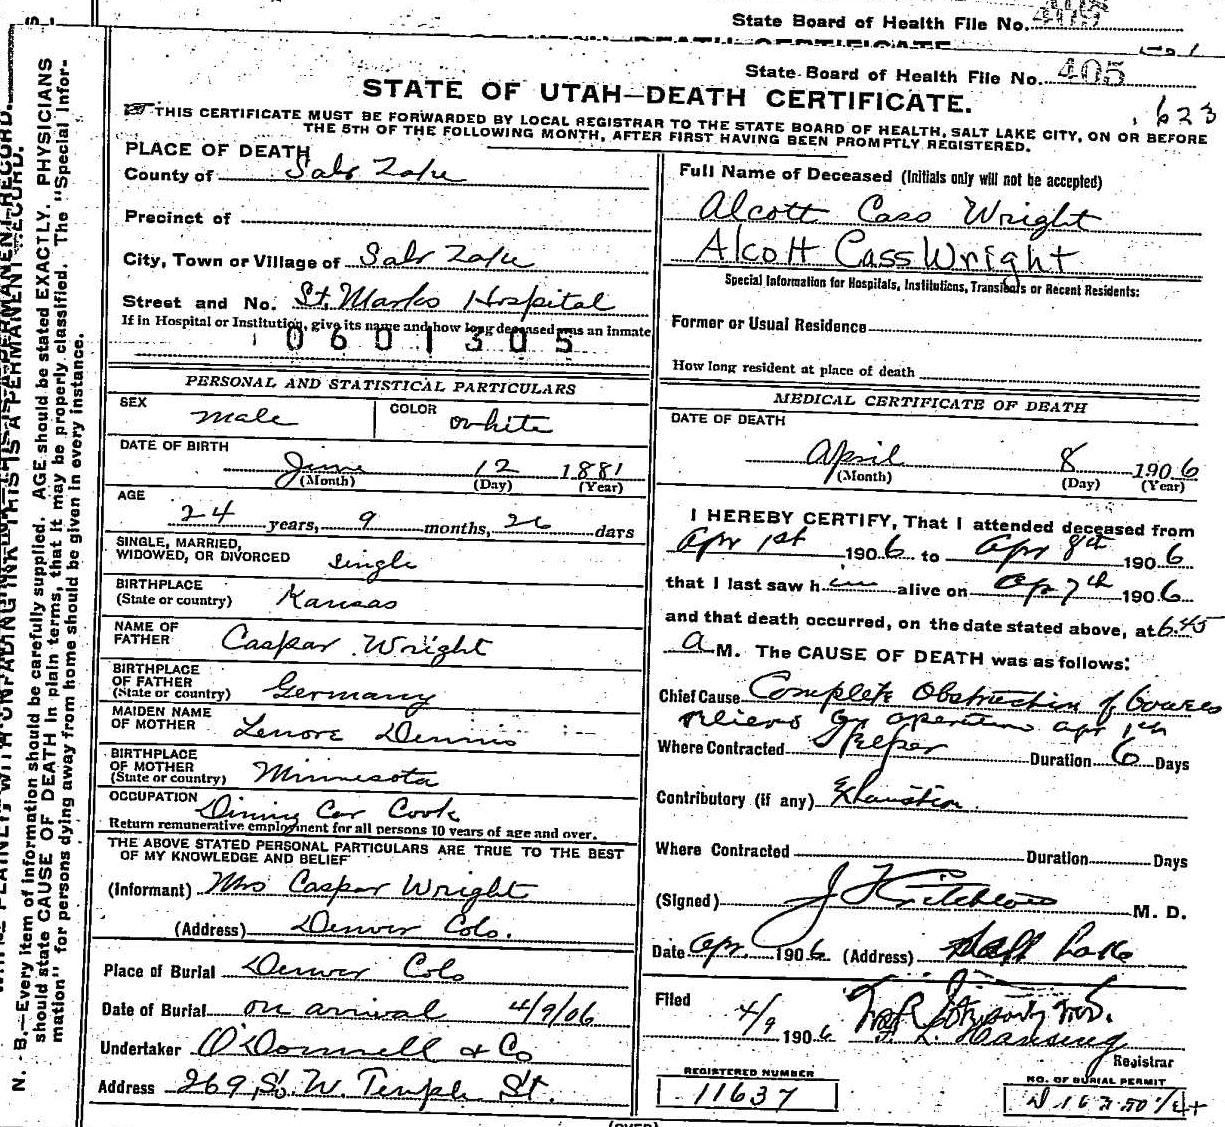 State Board of Health File No. 405
State Board of Health File No. 405
STATE OF UTAH—DEATH CERTIFICATE.
.623
THIS CERTIFICATE MUST BE FORWARDED BY LOCAL REGISTRAR TO THE STATE BOARD OF HEALTH, SALT LAKE CITY, ON OR BEFORE
THE 5TH OF THE FOLLOWING MONTH, AFTER FIRST HAVING BEEN PROMPTLY REGISTERED.
PLACE OF DEATH
County of Salt Lake
Precinct of
City, Town or Village of Salt Lake
Street and No. St. Marks Hospital
If in Hospital or Institution, give its name and how long deceased was an inmate
0601305
PERSONAL AND STATISTICAL PARTICULARS
SEX male COLOR white
DATE OF BIRTH
June 12 1881
(Month) (Day) (Year)
AGE
24 years, 9 months, 26 days
SINGLE, MARRIED,
WIDOWED, OR DIVORCED single
BIRTHPLACE
(State or country) Kansas
NAME OF
FATHER Caspar Wright
BIRTHPLACE
OF FATHER
(State or country) Germany
MAIDEN NAME
OF MOTHER Lenore Dennis
BIRTHPLACE
OF MOTHER
(State or country) Minnesota
OCCUPATION
Dining Car Cook
Return remunerative employment for all persons 10 years of age and over.
THE ABOVE STATED PERSONAL PARTICULARS ARE TRUE TO THE BEST
OF MY KNOWLEDGE AND BELIEF
(Informant) Mrs Caspar Wright
(Address) Denver Colo.
Place of Burial Denver Colo
Date of Burial on arrival 4/9/06
Undertaker O'Donnell & Co
Address 269 So. W. Temple St.
Full Name of Deceased (Initials only will not be accepted)
Alcott Cass Wright
Alcott Cass Wright
Special Information for Hospitals, Institutions, Transients or Recent Residents:
Former or Usual Residence
How long resident at place of death
MEDICAL CERTIFICATE OF DEATH
DATE OF DEATH
April 8 1906
(Month) (Day) (Year)
I HEREBY CERTIFY, That I attended deceased from
Apr 1st 1906 to Apr 8th 1906
that I last saw him alive on Ap 7th 1906
and that death occurred, on the date stated above, at 6.45
a M. The CAUSE OF DEATH was as follows:
Chief Cause Complete Obstruction of Bowels
operation apr 1st
Where Contracted Duration 6 Days
Contributory (if any) Exhaustion
Where Contracted Duration Days
(Signed) J F Critchlow M. D.
Date Apr. 1906 (Address) Salt Lake
Filed 4/9 1906
Registrar
REGISTERED NUMBER
11637
NO. OF BURIAL PERMIT
N. B.—Every item of information should be carefully supplied. AGE should be stated EXACTLY. PHYSICIANS
should state CAUSE OF DEATH in plain terms, that it may be properly classified. The "Special Infor-
mation" for persons dying away from home should be given in every instance.